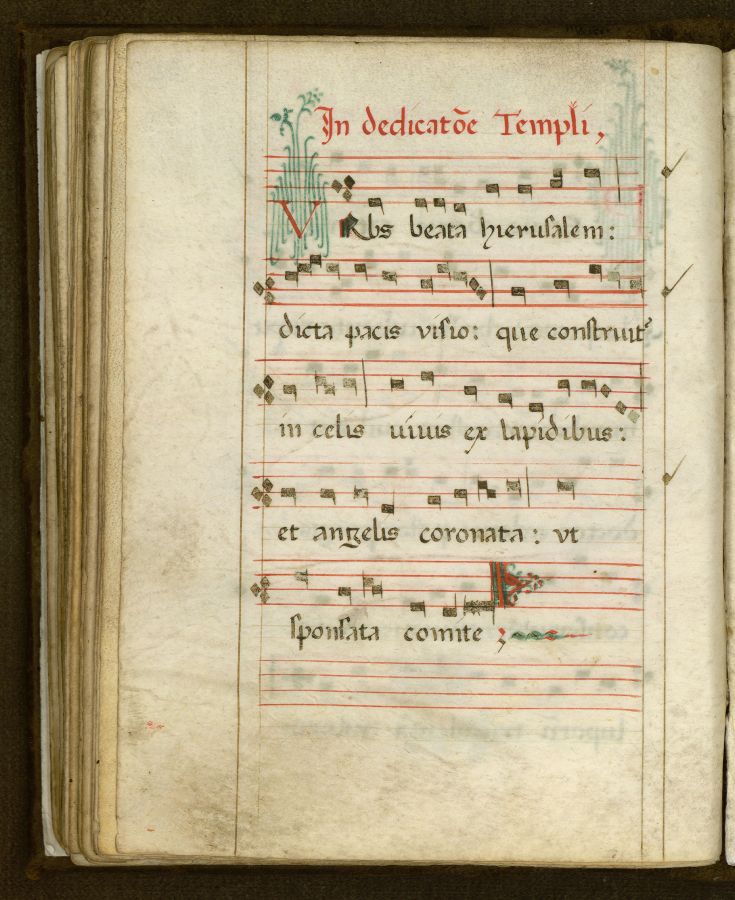 In dedicatõe Templi,
VRbs beata hierusalem:
dicta pacis visio: que construit᷒
in celis uiuis ex lapidibus:
et angelis coronata: vt
sponsata comite